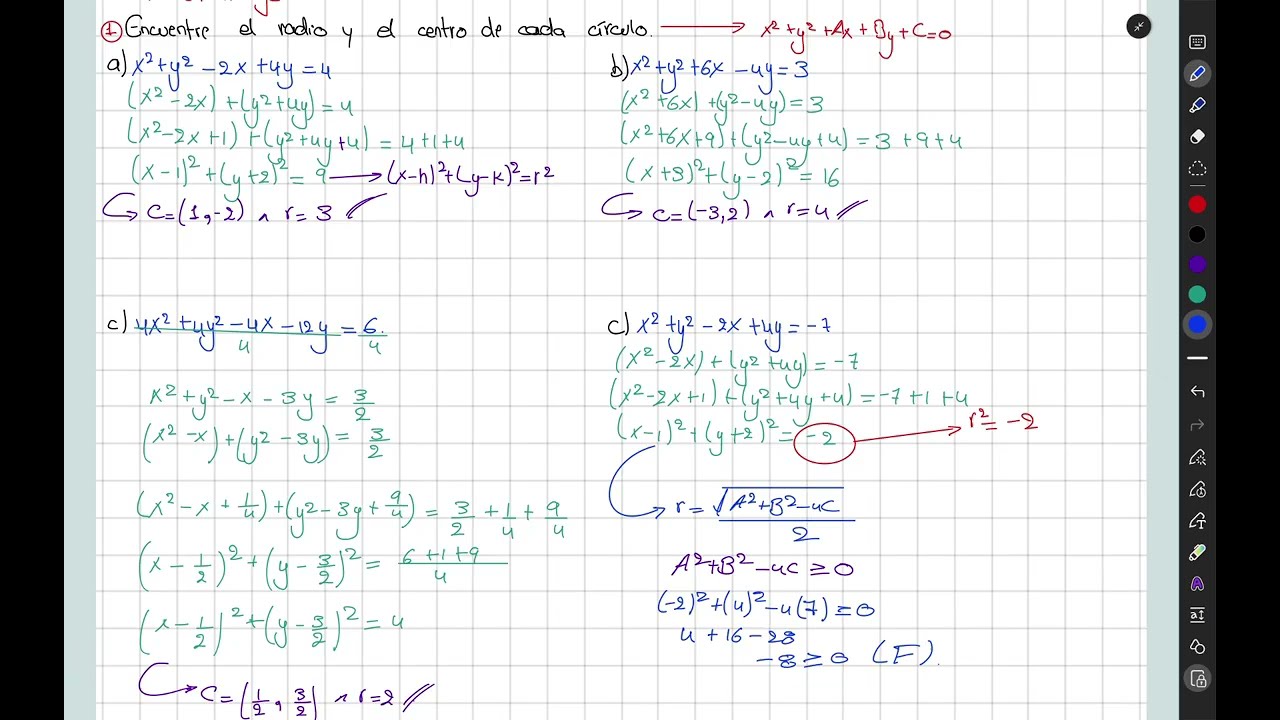 ① Encuentre el radio y el centro de cada círculo. → x² + y² + Ax + By + C = 0
a) x² + y² - 2x + 4y = 4
(x² - 2x) + (y² + 4y) = 4
(x² - 2x + 1) + (y² + 4y + 4) = 4 + 1 + 4
(x - 1)² + (y + 2)² = 9 → (x-h)² + (y-k)² = r²
↪ C = (1, -2) ∧ r = 3
b) x² + y² + 6x - 4y = 3
(x² + 6x) + (y² - 4y) = 3
(x² + 6x + 9) + (y² - 4y + 4) = 3 + 9 + 4
(x + 3)² + (y - 2)² = 16
↪ C = (-3, 2) ∧ r = 4
c) 4x² + 4y² - 4x - 12y = 6
4 4
x² + y² - x - 3y = 3/2
(x² - x) + (y² - 3y) = 3/2
(x² - x + 1/4) + (y² - 3y + 9/4) = 3/2 + 1/4 + 9/4
(x - 1/2)² + (y - 3/2)² = (6+1+9)/4
(x - 1/2)² + (y - 3/2)² = 4
↪ C = (1/2, 3/2) ∧ r = 2
c) x² + y² - 2x + 4y = -7
(x² - 2x) + (y² + 4y) = -7
(x² - 2x + 1) + (y² + 4y + 4) = -7 + 1 + 4
(x - 1)² + (y + 2)² = -2 → r² = -2
↪ r = √(A² + B² - 4C)/2
A² + B² - 4C ≥ 0
(-2)² + (4)² - 4(7) ≥ 0
4 + 16 - 28
-8 ≥ 0 (F).